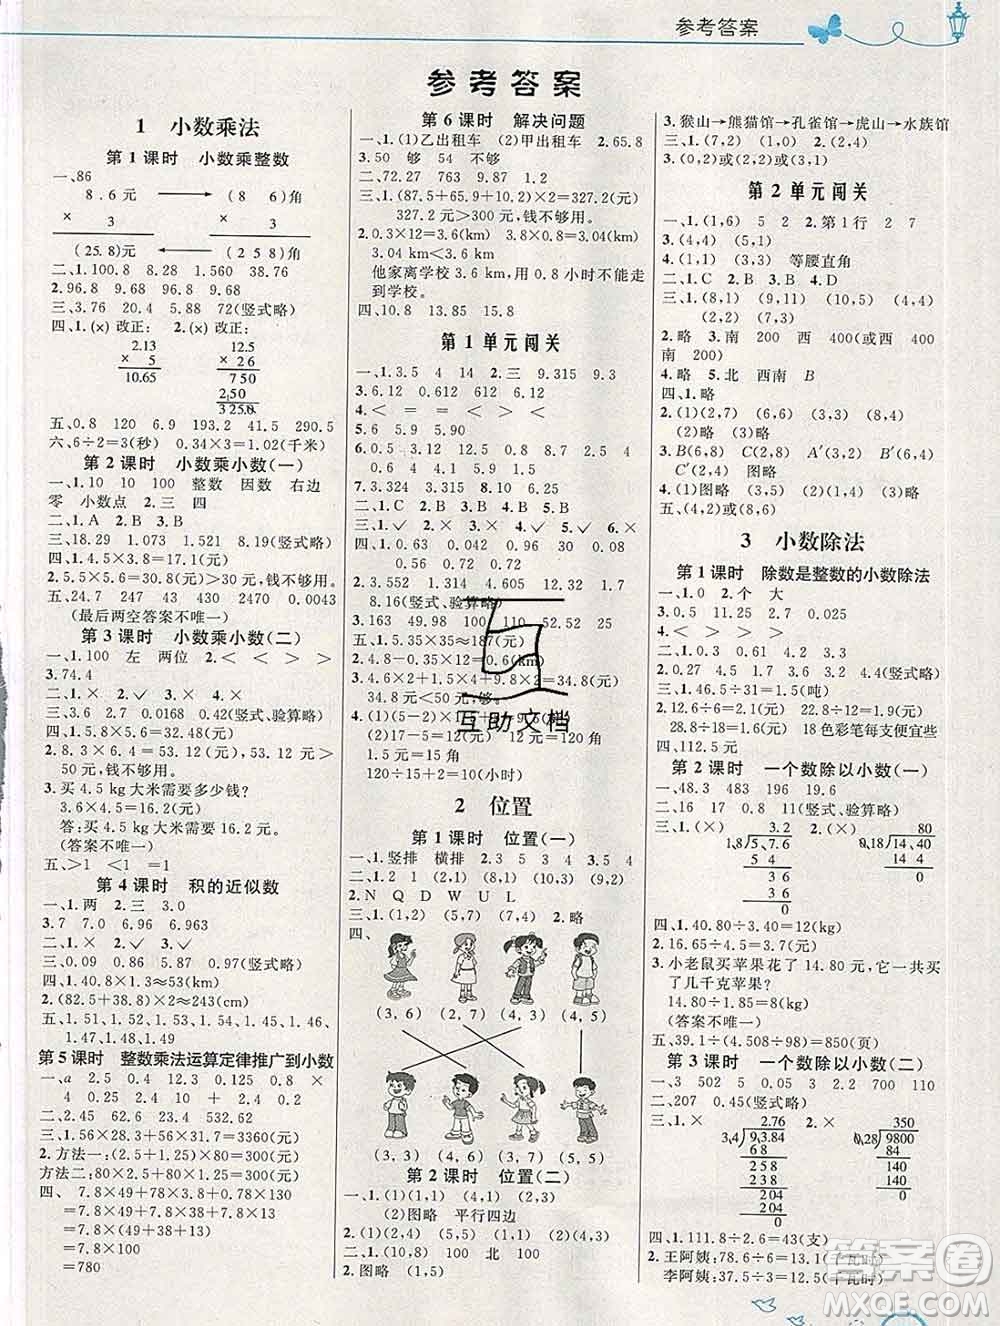 参考答案
参考答案
1 小数乘法
第1课时 小数乘整数
一、86
8.6元 (8 6)角
× 3 × 3
(25.8)元 (258)角
二、1.100.8 8.28 1.560 38.76
2.96.8 9.68 96.8 9.68
三、3.76 20.4 5.88 72(竖式略)
四、1.(×) 改正: 2.(×) 改正:
2.13 12.5
× 5 × 26
10.65 750
250
325.0
五、0.8 120 6.9 193.2 41.5 290.5
六、6÷2=3(秒) 0.34×3=1.02(千米)
第2课时 小数乘小数(一)
一、1.10 10 100 整数 因数 右边
零 小数点 2.三 四
二、1.A 2.B 3.B
三、18.29 1.073 1.521 8.19(竖式略)
四、1.4.5×3.8=17.1(元)
2.5.5×5.6=30.8(元)>30元,钱不够用。
五、24.7 247 43 430 2470 0.0043
(最后两空答案不唯一)
第3课时 小数乘小数(二)
一、1.100 左 两位 2.> < > >
3.74.4
二、1.× 2.× 3.√
三、3.6 2.7 0.0168 0.42(竖式、验算略)
四、1.5.8×5.6=32.48(元)
2.8.3×6.4=53.12(元) 53.12>50,
钱不够用。
3.买4.5 kg大米需要多少钱?
3.6×4.5=16.2(元)
答:买4.5 kg大米需要16.2元。
(答案不唯一)
五、>1 <1 =1
第4课时 积的近似数
一、1.两 2.三 3.0
3.7 7.0 6.97 6.963
二、1.× 2.× 3.√
三、0.09 0.86 0.02(竖式略)
四、1.0.04×3.8≈0.152(元)
2.(82.5+38.9)×2≈243(cm)
五、1.51、1.52、1.53、1.54、1.45、1.46、
1.47、1.48、1.49
第5课时 整数乘法运算定律推广到小数
一、a 2.5 0.4 0.125 0.8 × +
4 0.4 10 0.25 0.4
二、2.45 12.4 234 532.62
三、1.56×28+56×32=3360(元)
2.方法一:(2.5+1.25)×80=300(元)
方法二:2.5×80+1.25×80=300(元)
四、 7.8×49+78×3.8+7.8×13
=7.8×49+7.8×38+7.8×13
=7.8×(49+38+13)
=7.8×100
=780
第6课时 解决问题
一、1.(1)乙出租车 (2)甲出租车 2.65.8
3.50 够 54 不够
二、72.27 763 9.86 1.2
三、1.(87.5+65.9+10.2)×2=327.2(元)
327.2元>300元,钱不够用。
2.0.3×12=3.6(km) 3.8×0.8=3.04(km)
3.04 km<3.6 km
他家离学校3.6 km,用0.8小时不能走
到学校。
四、10.8 13.85 15.8
第1单元闯关
一、1.3.5 4 14 2.三 9.315 9.3
3.6.12 0.612 61.2 6.12
4.< = = < > <
5.6 5.9 5.90
6.0.5 3.12 12.5 0.4 0.125 4.5
4.5
7.3.225 3.315 4.5 8.= < >
9.4.54 4.45 10.20
二、1.C 2.D 3.B 4.B 5.B
三、1.√ 2.× 3.√ 4.√ 5.√ 6.×
四、1.0.63 0.048 0.9 0.06 0.42
0.56 0.72 0.72
2.35 12.7 87.4 132.32 1.7
8.16(竖式、验算略)
3.163 49.98 100 110 52.52 25
五、1.5.35×35≈187(元)
2.4.8-0.35×12=0.6(km)
3.4.6×2+1.5×4+9.8×2=34.8(元)
34.8元<50元,够。
4.(1)(5-2)×1.5+12=16.5(元)
(2)(17-5)=12(元) 12元=120角
120÷15+2=10(小时)
2 位置
第1课时 位置(一)
一、1.竖排 横排 2.3 5 3 4 3.5 4
二、1.2 1 (2,1) (4,1) (4,4)
2.N Q D W U L
三、1.(1,2) (5,7) (7,4) 2.略
四、
(3,6) (2,4) (3,5) (4,5)
(3,3) (4,6) (5,7) (3,5)
第2课时 位置(二)
一、1.(1)(1,1) (4,1) (2,3)
(2)图略 平行四边
2.(1,2) (5,5) (1,2) (4,3)
二、1.(10,8) 100 北 100
2.图略 (1,5)
3.猴山→熊猫馆→孔雀馆→虎山→水族馆
三、1.(7,3) (1,0) (2,4)
3.(0,2)或(2,3)或(3,1)
第2单元闯关
一、1.(1,6) 5 2 2.第1行 2 7
3.(4,4) (5,1)
4.(1,1) (3,1) (3,3) 等腰直角
二、1.C 2.B 3.B 4.D
三、1.(8,1) (9,5) (4,4)
(1,8) (10,7)
2.略 3.南 200 西 400(或西 400
南 200)
4.略 5.北 西南 B
四、1.略
2.(1)(2,7) (6,7) (3,4) (8,4)
(2)略 (3)略
3.B(6,8) C(2,8) A′(7,5) B′(7,9)
C′(2,4) 图略
4.(1)图略 (3,7) (5,5) (2)图略
五、(4,2)或(8,6)
3 小数除法
第1课时 除数是整数的小数除法
一、1.0 2.个 大
3.0.5 11.25 2.7 0.025
4.< > > > > <
二、1.B 2.C 3.A
2.0.27 4.5 3.7 1.35(竖式略)
三、1.46.5÷31=1.5(吨)
2.12.6÷6=2.1(元) 22.8÷12=1.9(元)
28.8÷18=1.6(元) 18色彩笔每支便宜些
四、112.5元
第2课时 一个数除以小数(一)
一、48.3 483 196 19.6
二、16 20 0.8 11(竖式、验算略)
三、1.(×) 2.(×)
3.2 80
1.8 5.7.6 0.18 14.40
5 4 14 4
36 0
36
0
四、1.40.80÷3.4=12(kg)
2.16.65÷4.5=3.7(元)
3.小老鼠买苹果花了14.80元,它一共买
了几千克苹果?
14.80÷1.85=8(kg)
(答案不唯一)
五、39.1÷(5-4.954)=850(页)
第3课时 一个数除以小数(二)
一、3 502 5 0.05 3.2 2 700 110
二、207 0.45(竖式略)
三、1.× 2.×
2.76 350
3.4 9.3.84 0.28 9800
6 8 84
258 140
238 140
204 0
204
0
四、1.111.8÷2.6=43(支)
2.王阿姨:78.6÷6=13.1(千瓦时)
李阿姨:37.5÷3=12.5(千瓦时)
互助文档
答案圈
MXQE.COM